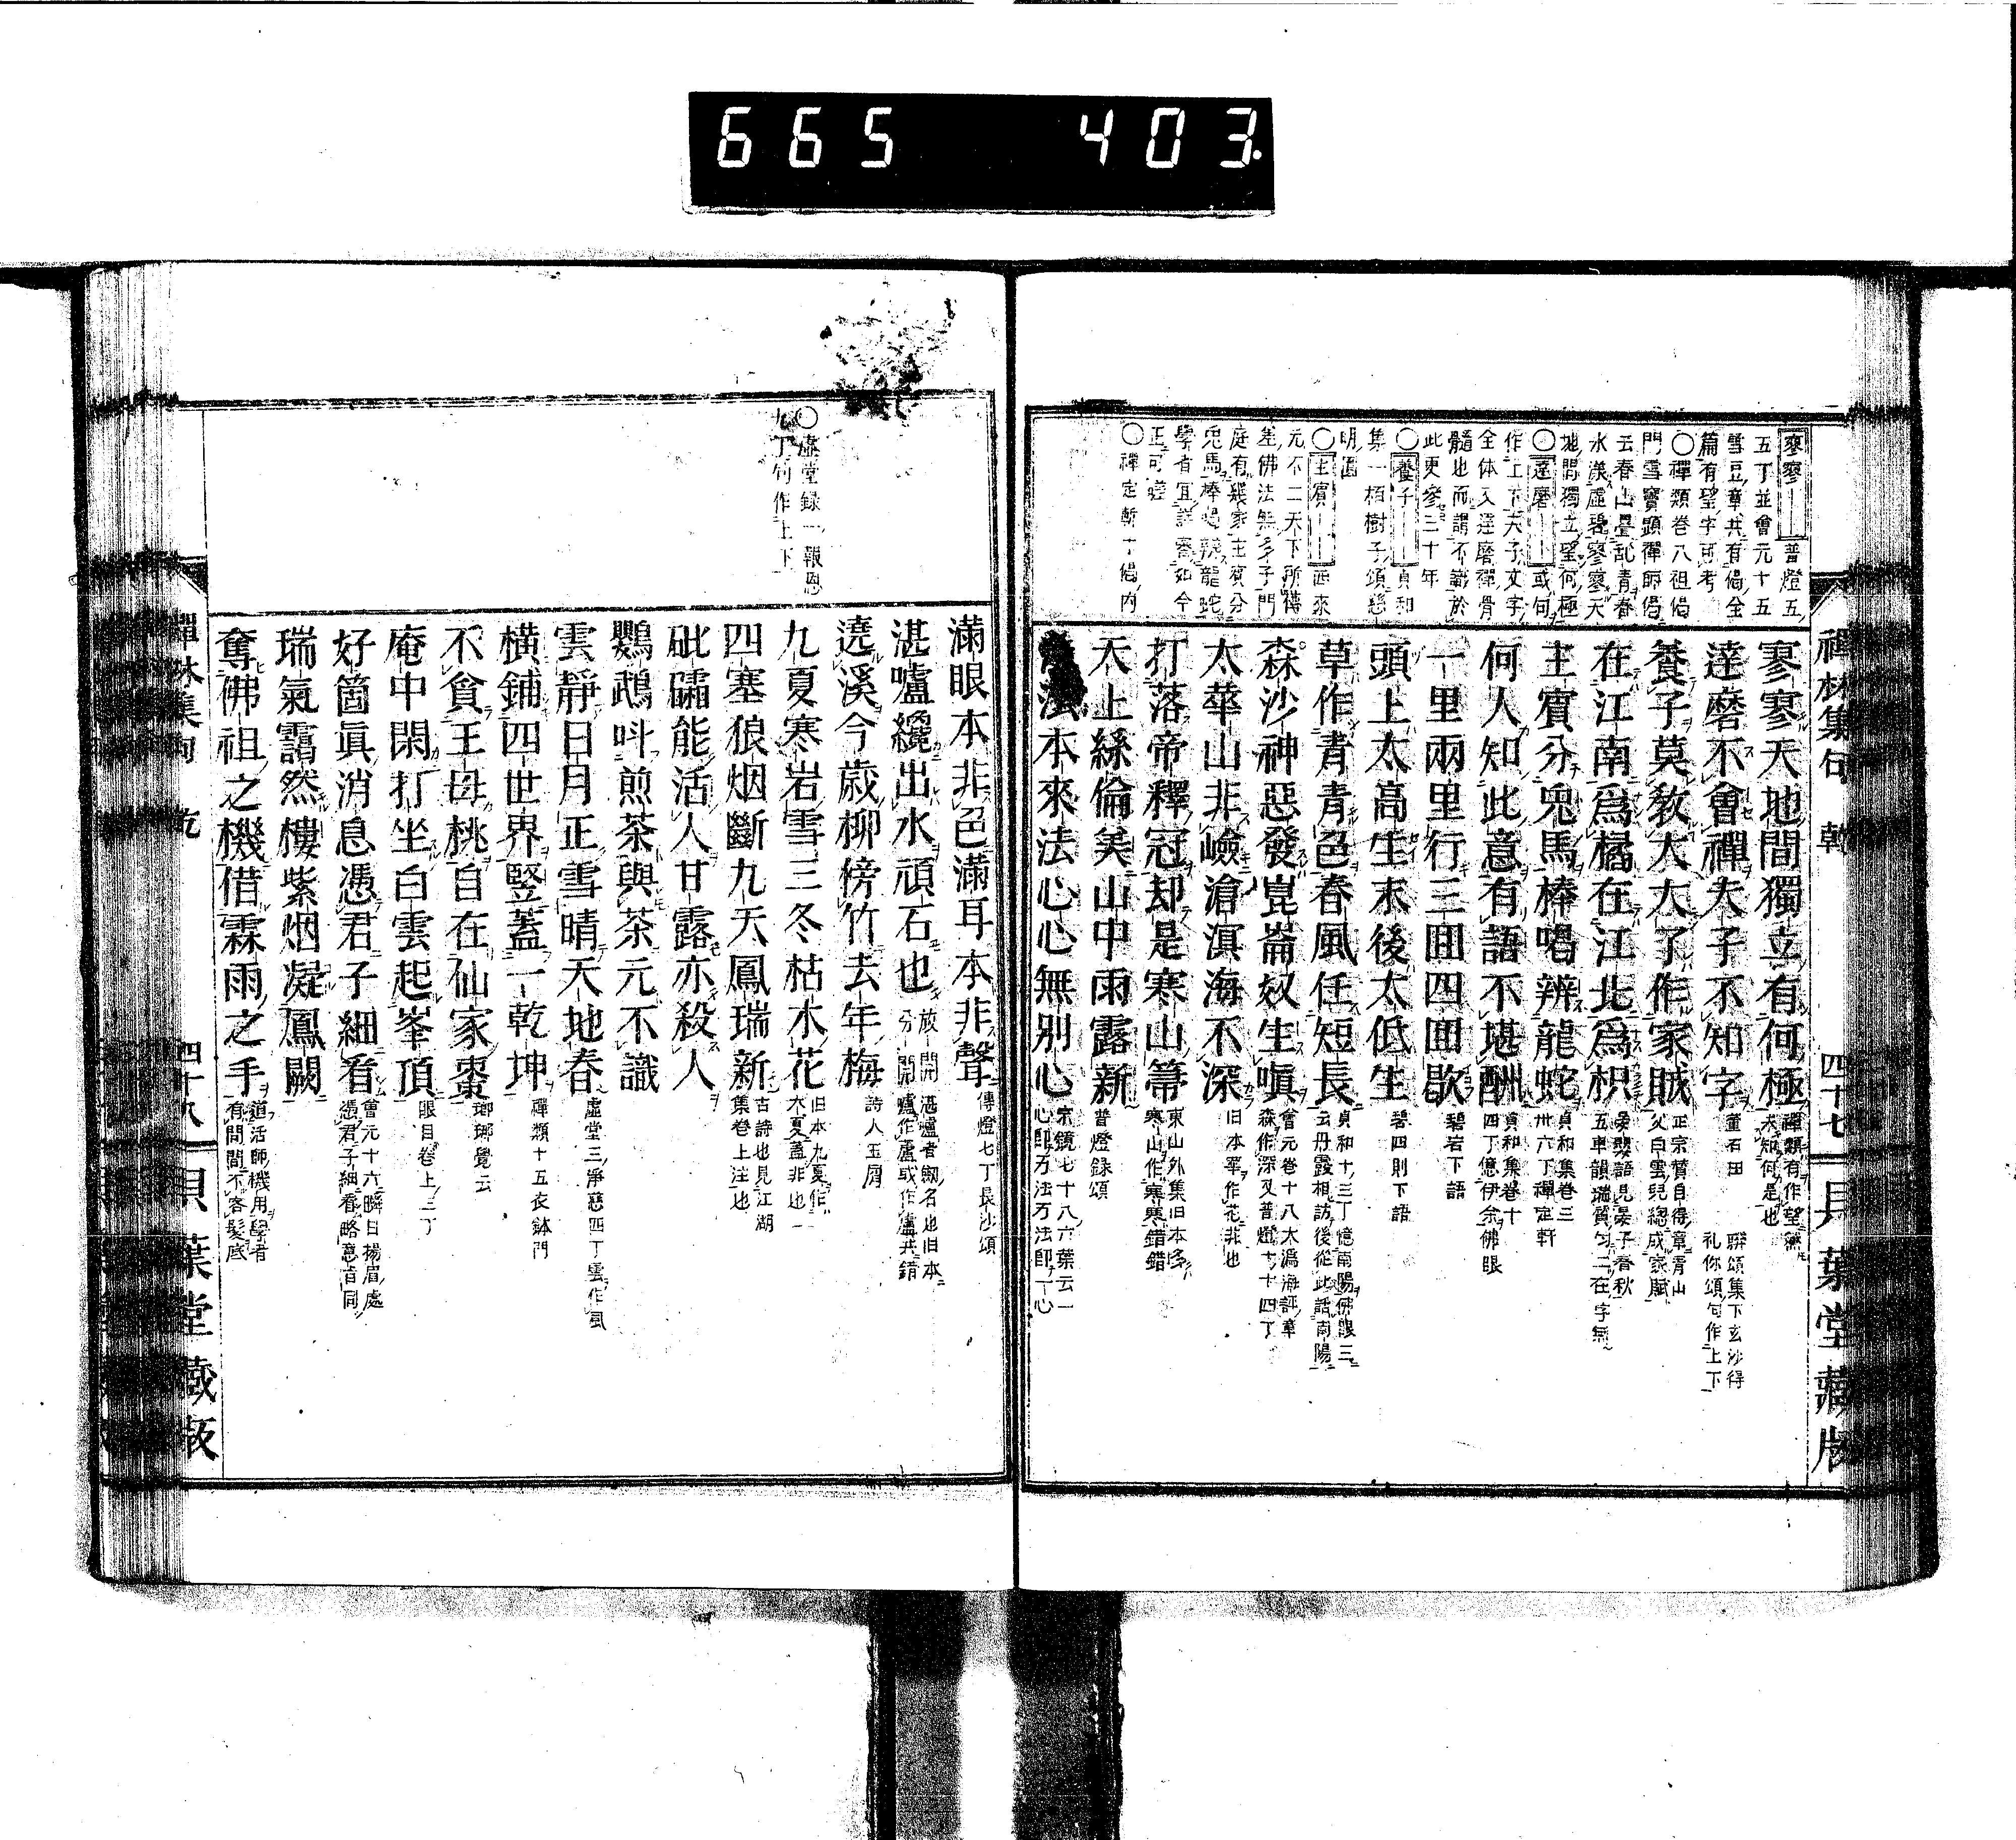 665 403.
禪林集句 乾 四十七 貝葉堂藏版
寥寥 普燈五
五丁並會元十五
雪豆章共有偈全
篇有望字可考
○禪類卷八祖偈
門雪竇顯禪師偈
云春山疊乱青春
水漾虛碧寥寥天
地間獨立望何極
○達磨 或句
作上下夫子文字
全体又達磨禪骨
髓也而謂不識於
此更參三十年
○養子 貞和
集一栢樹子頌
明圓
○主賓 西來
元不二天下所傳
差佛法無多子門
庭有幾家主賓分
兜馬棒喝辨龍蛇
學者宜詳審如今
正可差
○禪定斬丁偈內
寥寥天地間獨立有何極 禪類有作望
達磨不會禪夫子不知字 聯頌集下玄沙得 礼你頌句作上下
養子莫敎大大了作家賊 正宗贊自得章青山 父白雲兒總成家賊
在江南爲橘在江北爲枳 晏嬰語見晏子春秋 五車韻瑞質勻二在字無
主賓分兜馬棒喝辨龍蛇 貞和集卷三 卅六丁禪定軒
何人知此意有語不堪酬 貞和集卷十 四丁億伊余佛眼
一里兩里行三囬四囬歇 碧岩下語
頭上太高生末後太低生 碧四則下語
草作青青色春風任短長 貞和十三丁憶南陽佛眼三 云丹霞相訪後從此話南陽
森沙神惡發崑崙奴生嗔 會元卷十八大溈海評章 森作深又普燈七十四丁
太華山非嶮滄溟海不深 旧本華作花非也
打落帝釋冠却是寒山箒 東山外集旧本多 寒山作寒寒錯錯
天上絲倫美山中雨露新 普燈錄頌
法本來法心心無别心 宗鏡七十八六葉云一 心即万法万法即一心
○虛堂録一報恩
九丁句作上下
滿眼本非色滿耳本非聲 傳燈七丁長沙頌
湛嚧纔出水頑石也 放開 分開 湛爐者劔名也旧本 嚧作蘆或作瀘共錯
遶溪今歲柳榜竹去年梅 詩人玉屑
九夏寒岩雪三冬枯木花 旧本九夏作 大夏蓋非也
四塞狼烟斷九天鳳瑞新 古詩也見江湖 集卷上注也
砒礵能活人甘露亦殺人
鸚鵡呌煎茶與茶元不識
雲靜日月正雪晴天地春 虛堂三淨慈四丁雲作風
橫鋪四世界竪蓋一乾坤 禪類十五衣鉢門
不貪王母桃自在仙家棗 瑯瑘覺云
庵中閑打坐白雲起峯頂 眼目卷上三丁
好箇眞消息憑君子細看 會元十六瞬目揚眉處 憑君子細看略意旨同
瑞氣靄然樓紫烟凝鳳闕
奪佛祖之機借霖雨之手 道活師機用學者 有間間不容髮底
禪林集句 乾 四十八 貝葉堂藏版